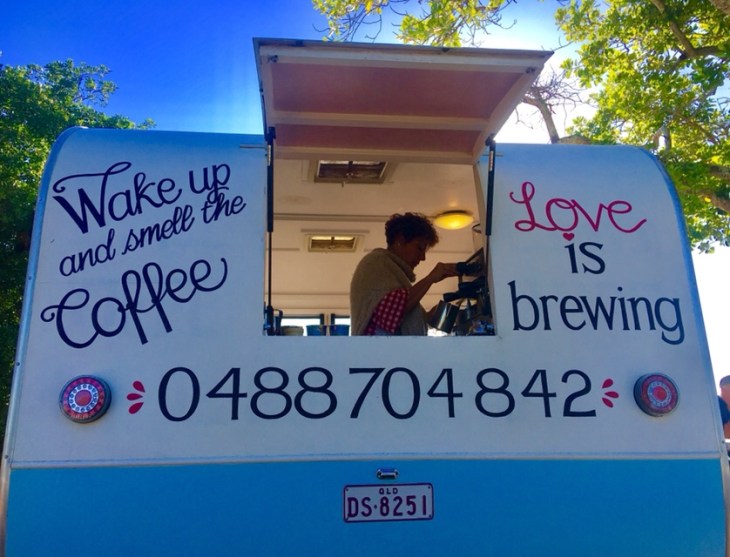 Wake up
and smell the
Coffee
Love
is
brewing
0488704842
QLD
DS·8251